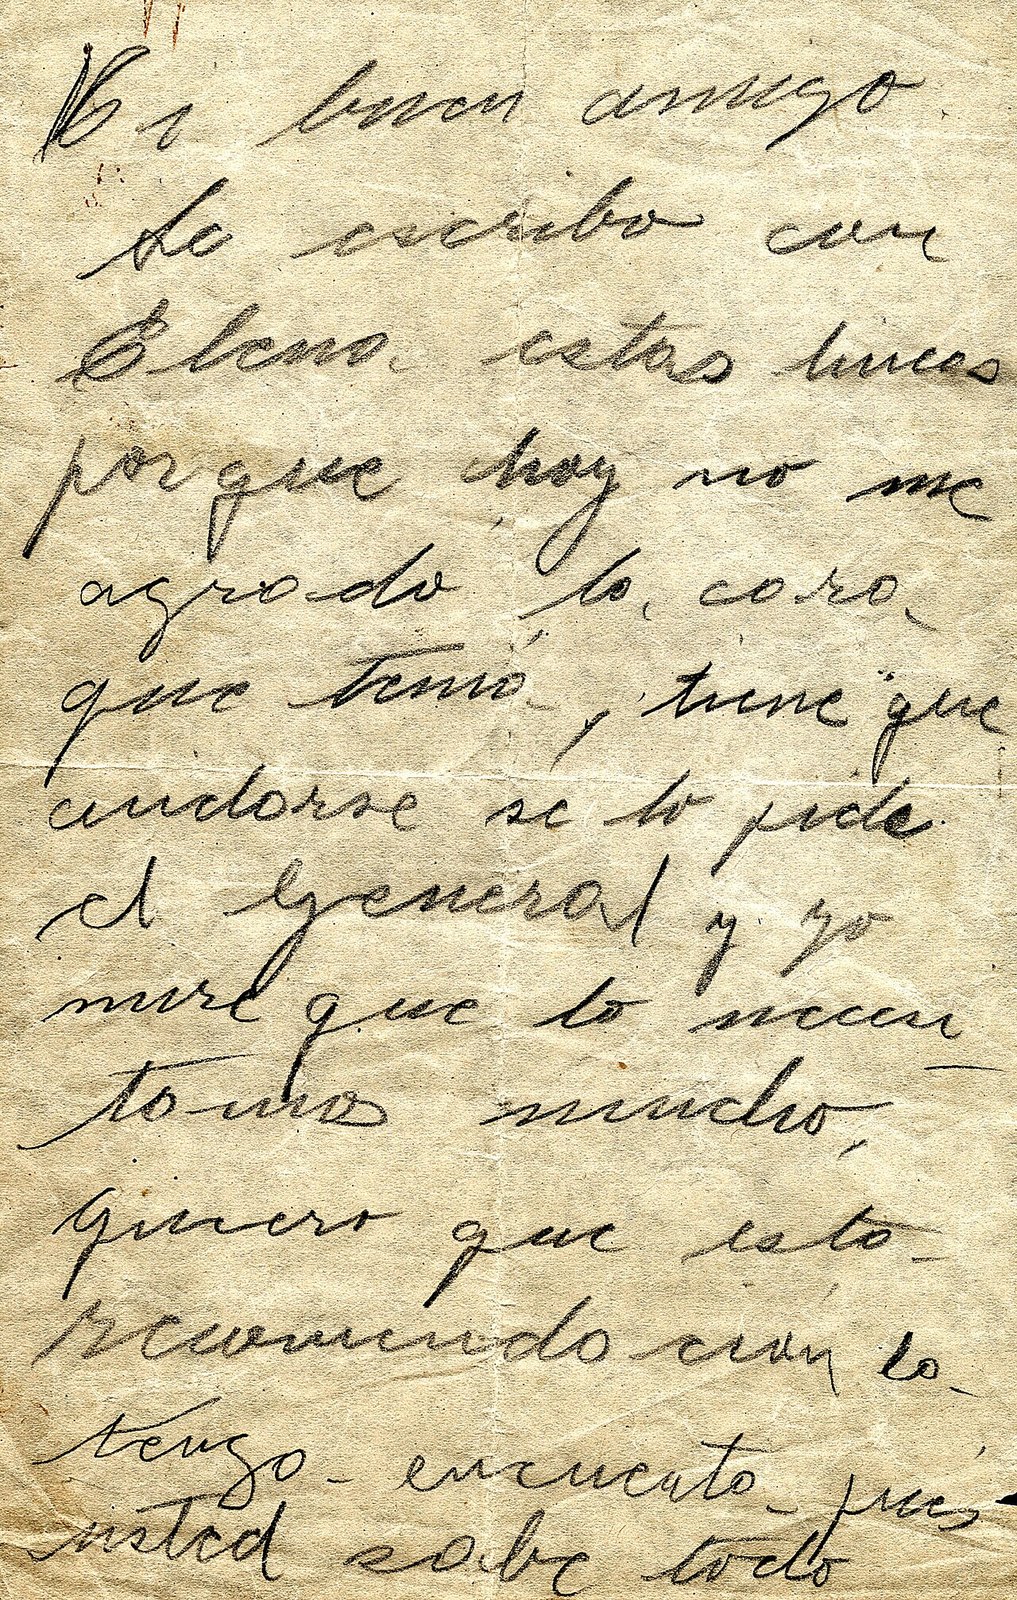 Mi buen amigo.
Le escribo con
Elena estas lineas
porque hoy no me
agrado la cara
que tenia, tiene que
cuidarse se lo pide
el General y yo
mire que lo necesi
tamos mucho,
quiero que esta
recomendacion la
tenga encuenta pues
usted sabe todo